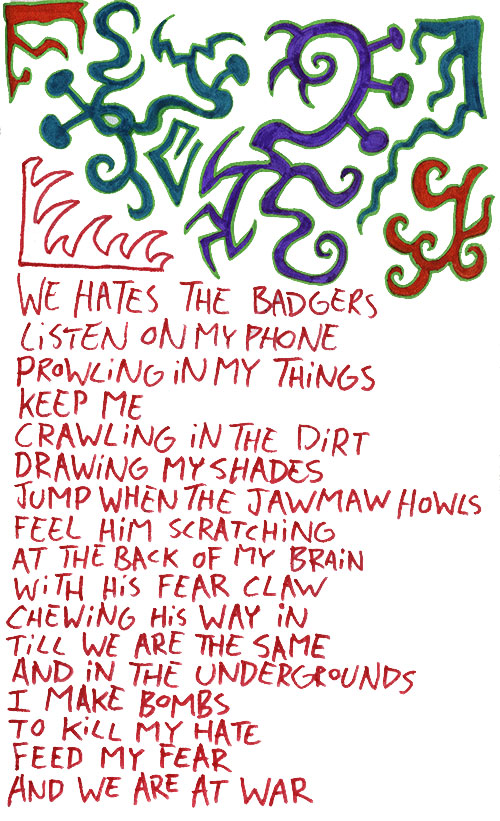 WE HATES THE BADGERS
LiSTEN ON MY PHONE
PROWLiNG iN MY THiNGS
KEEP ME
CRAWLiNG iN THE DiRT
DRAWiNG MY SHADES
JUMP WHEN THE JAWMAW HOWLS
FEEL HiM SCRATCHiNG
AT THE BACK OF MY BRAiN
WiTH HiS FEAR CLAW
CHEWiNG HiS WAY iN
TiLL WE ARE THE SAME
AND iN THE UNDERGROUNDS
I MAKE BOMBS
TO KiLL MY HATE
FEED MY FEAR
AND WE ARE AT WAR